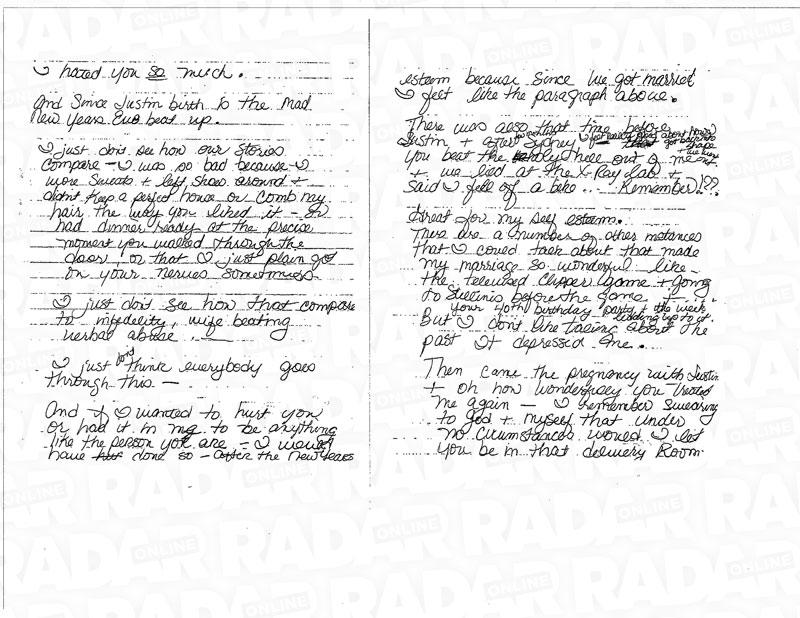 I hated you so much.
And since Justin birth to the mad
New Years Eve beat up.
I just don't see how our stories
compare - I was so bad because I
wore sweats + left shoes around +
didn't keep a perfect house or comb my
hair the way you liked it - or
had dinner ready at the precise
moment you walked through the
door or that I just plain got
on your nerves sometimes
I just don't see how that compares
to infidelity, wife beating
verbal abuse
I just don't think everybody goes
through this -
And if I wanted to hurt you
or had it in me to be anything
like the person you are - I would
have done so - after the New Years
esteem because since we got married
I felt like the paragraph above.
There was also that time before
Justin + after Sydney
You beat the holy hell out of me
+ we lied at the X-Ray lab +
said I fell off a bike... Remember!??
Great for my self esteem.
There are a number of other instances
that I could talk about that made
my marriage so wonderful like -
the televised Clipper game + going
to before the game +
your 40th birthday party + the week
leading up to it.
But I don't like talking about the
past It depressed me.
Then came the pregnancy with Justin
+ oh how wonderfully you treated
me again - I remember swearing
to God + myself that under
no circumstances would I let
you be in that delivery room
RADAR ONLINE